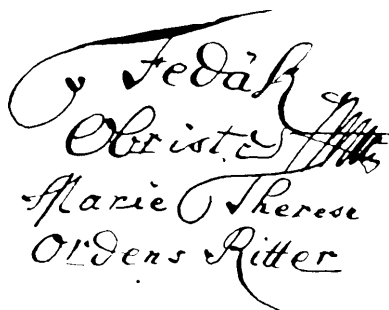 Fedák
Obrist
Marie Therese
Ordens Ritter